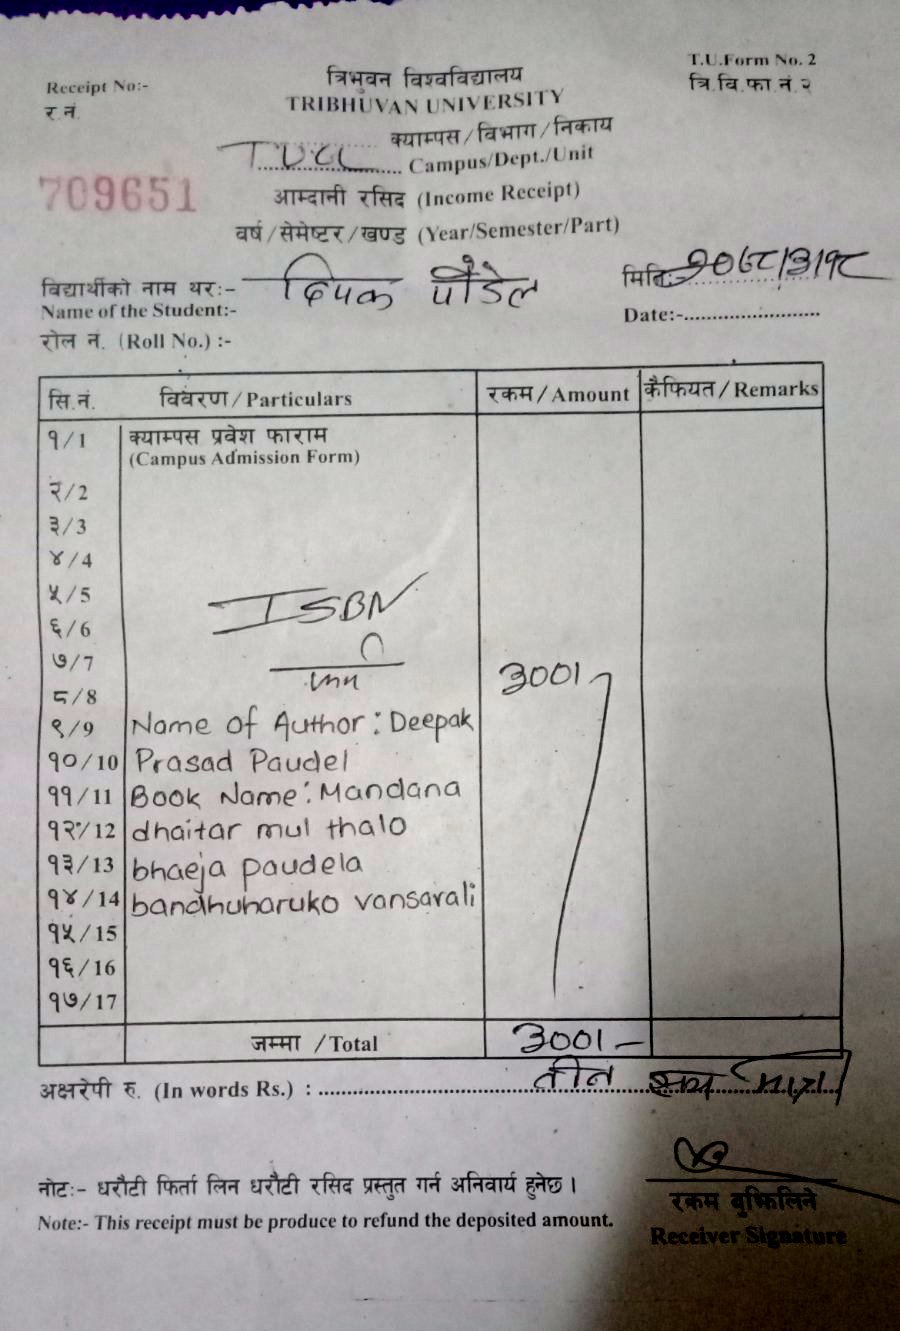 T.U.Form No. 2
त्रि.वि.फा.नं.२
Receipt No:-
र.नं.
त्रिभुवन विश्वविद्यालय
TRIBHUVAN UNIVERSITY
क्याम्पस/विभाग/निकाय
TUCL Campus/Dept./Unit
709651
आम्दानी रसिद (Income Receipt)
वर्ष/सेमेष्टर/खण्ड (Year/Semester/Part)
विद्यार्थीको नाम थरः- दिपक पौडेल
मितिः २०७८/३/१८
Name of the Student:-
Date:-
रोल नं. (Roll No.) :-
सि.नं. विवरण/Particulars रकम/Amount कैफियत/Remarks
१/1 क्याम्पस प्रवेश फाराम
(Campus Admission Form)
२/2
३/3
४/4
५/5 ISBN
६/6
७/7 300/-
८/8
९/9 Name of Author: Deepak
१०/10 Prasad Paudel
११/11 Book Name: Mandana
१२/12 dhaitar mul thalo
१३/13 bhaeja paudela
१४/14 bandhuharuko vansavali
१५/15
१६/16
१७/17
जम्मा /Total 300/-
अक्षरेपी रु. (In words Rs.) : तीन सय मात्र
नोटः- धरौटी फिर्ता लिन धरौटी रसिद प्रस्तुत गर्न अनिवार्य हुनेछ।
रकम बुझिलिने
Note:- This receipt must be produce to refund the deposited amount.
Receiver Signature